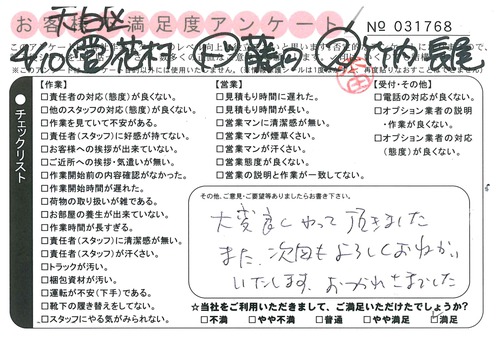 天白区
お客様満足度アンケート
№ 031768
4/10
●チェックリスト
【作業】
□責任者の対応(態度)が良くない。
□他のスタッフの対応(態度)が良くない。
□作業を見ていて不安がある。
□責任者(スタッフ)に好感が持てない。
□お客様への挨拶が出来ていない。
□ご近所への挨拶・気遣いが無い。
□作業開始前の内容確認がなかった。
□作業開始時間が遅れた。
□荷物の取り扱いが雑である。
□お部屋の養生が出来ていない。
□作業時間が長すぎる。
□責任者(スタッフ)に清潔感が無い。
□責任者(スタッフ)が汗くさい。
□トラックが汚い。
□梱包資材が汚い。
□運転が不安(下手)である。
□靴下の履き替えをしてない。
□スタッフにやる気がみられない。
【営業】
□見積もり時間に遅れた。
□見積もり時間が長い。
□営業マンに清潔感が無い。
□営業マンが煙草くさい。
□営業マンが汗くさい。
□営業態度が良くない。
□営業の説明と作業が一致してない。
【受付・その他】
□電話の対応が良くない。
□オプション業者の説明
・作業が良くない。
□オプション業者の対応
(態度)が良くない。
その他、ご意見・ご要望等ありましたらお書き下さい。
大変良くやって頂きました
また、次回もよろしくおねがい
いたします。おつかれさまでした
☆当社をご利用いただきまして、ご満足いただけたでしょうか?
□不満 □やや不満 □普通 □やや満足 □満足